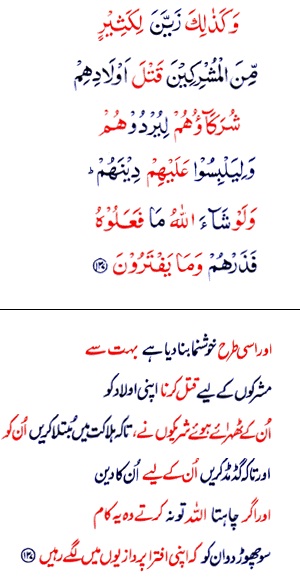 وَكَذٰلِكَ زَيَّنَ لِكَثِيْرٍ
مِّنَ الْمُشْرِكِيْنَ قَتْلَ اَوْلَادِهِمْ
شُرَكَآؤُهُمْ لِيُرْدُوْهُمْ
وَلِيَلْبِسُوْا عَلَيْهِمْ دِيْنَهُمْ ؕ
وَلَوْ شَآءَ اللّٰهُ مَا فَعَلُوْهُ
فَذَرْهُمْ وَمَا يَفْتَرُوْنَ ﴿۱۳۷﴾
اور اسی طرح خوشنما بنا دیا ہے بہت سے
مشرکوں کے لیے قتل کرنا اپنی اولاد کو
اُن کے ٹھہرائے ہوئے شریکوں نے، تاکہ ہلاکت میں مُبتلا کریں اُن کو
اور تاکہ گڈمڈ کریں اُن کے لیے اُن کا دین
اور اگر چاہتا اللہ تو نہ کرتے وہ یہ کام
سو چھوڑ دو ان کو کہ اپنی افترا پردازیوں میں لگے رہیں ﴿۱۳۷﴾